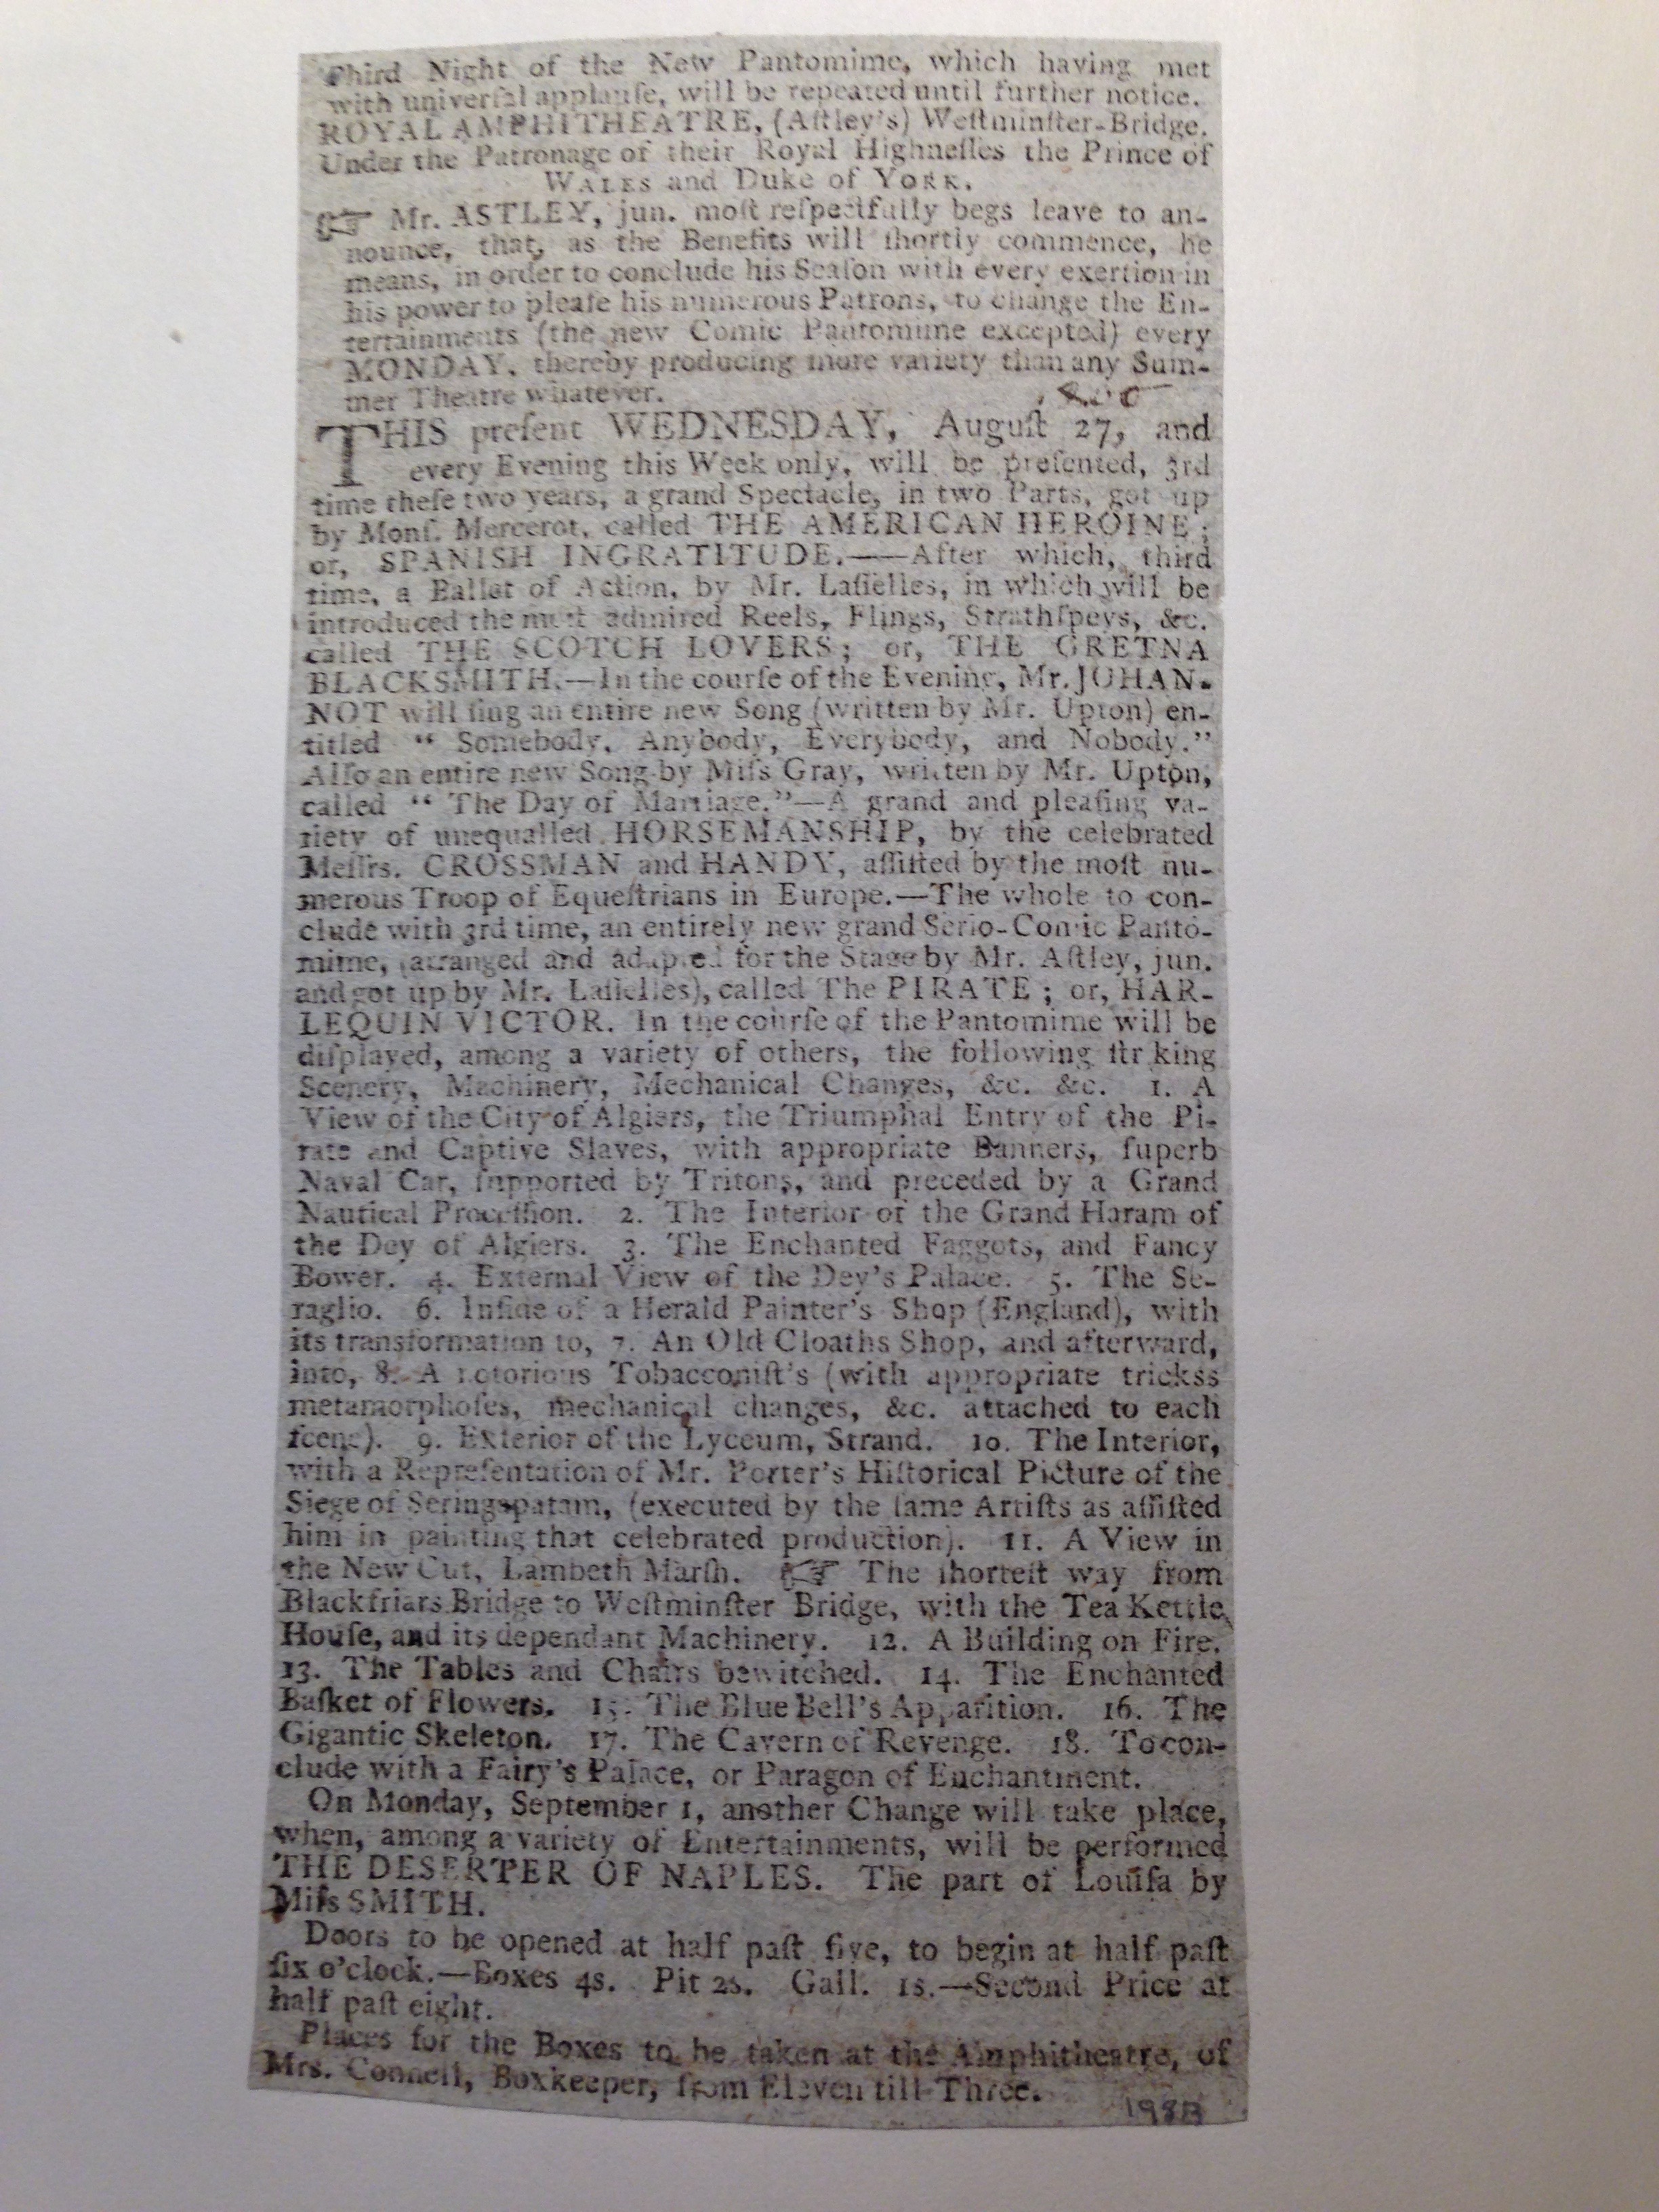 Third Night of the New Pantomime, which having met
with univerſal applauſe, will be repeated until further notice.
ROYAL AMPHITHEATRE, (Aſtley's) Weſtminſter-Bridge.
Under the Patronage of their Royal Highneſſes the Prince of
WALES and Duke of YORK.
☞ Mr. ASTLEY, jun. moſt reſpectfully begs leave to an-
nounce, that, as the Benefits will ſhortly commence, he
means, in order to conclude his Seaſon with every exertion in
his power to pleaſe his numerous Patrons, to change the En-
tertainments (the new Comic Pantomime excepted) every
MONDAY, thereby producing more variety than any Sum-
mer Theatre whatever.
THIS preſent WEDNESDAY, Auguſt 27, and
every Evening this Week only, will be preſented, 3rd
time theſe two years, a grand Spectacle, in two Parts, got up
by Monſ. Mercerot, called THE AMERICAN HEROINE;
or, SPANISH INGRATITUDE.——After which, third
time, a Ballet of Action, by Mr. Laſſelles, in which will be
introduced the moſt admired Reels, Flings, Strathſpeys, &c.
called THE SCOTCH LOVERS; or, THE GRETNA
BLACKSMITH.—In the courſe of the Evening, Mr. JOHAN-
NOT will ſing an entire new Song (written by Mr. Upton) en-
titled “ Somebody, Anybody, Everybody, and Nobody.”
Alſo an entire new Song by Miſs Gray, written by Mr. Upton,
called “ The Day of Marriage.”—A grand and pleaſing va-
riety of unequalled HORSEMANSHIP, by the celebrated
Meſſrs. CROSSMAN and HANDY, aſſiſted by the moſt nu-
merous Troop of Equeſtrians in Europe.—The whole to con-
clude with 3rd time, an entirely new grand Serio-Comic Panto-
mime, (arranged and adapted for the Stage by Mr. Aſtley, jun.
and got up by Mr. Laſſelles), called The PIRATE; or, HAR-
LEQUIN VICTOR. In the courſe of the Pantomime will be
diſplayed, among a variety of others, the following ſtr king
Scenery, Machinery, Mechanical Changes, &c. &c. 1. A
View of the City of Algiers, the Triumphal Entry of the Pi-
rate and Captive Slaves, with appropriate Banners, ſuperb
Naval Car, ſupported by Tritons, and preceded by a Grand
Nautical Proceſſion. 2. The Interior of the Grand Haram of
the Dey of Algiers. 3. The Enchanted Faggots, and Fancy
Bower. 4. External View of the Dey's Palace. 5. The Se-
raglio. 6. Inſide of a Herald Painter's Shop (England), with
its transformation to, 7. An Old Cloaths Shop, and afterward,
into, 8. A notorious Tobacconiſt's (with appropriate trickss
metamorphoſes, mechanical changes, &c. attached to each
ſcene). 9. Exterior of the Lyceum, Strand. 10. The Interior,
with a Repreſentation of Mr. Porter's Hiſtorical Picture of the
Siege of Seringapatam, (executed by the ſame Artiſts as aſſiſted
him in painting that celebrated production). 11. A View in
the New Cut, Lambeth Marſh. ☞ The ſhorteſt way from
Blackfriars Bridge to Weſtminſter Bridge, with the Tea Kettle
Houſe, and its dependant Machinery. 12. A Building on Fire.
13. The Tables and Chairs bewitched. 14. The Enchanted
Baſket of Flowers. 15. The Blue Bell's Apparition. 16. The
Gigantic Skeleton. 17. The Cavern of Revenge. 18. To con-
clude with a Fairy's Palace, or Paragon of Enchantment.
On Monday, September 1, another Change will take place,
when, among a variety of Entertainments, will be performed
THE DESERTER OF NAPLES. The part of Louiſa by
Miſs SMITH.
Doors to be opened at half paſt five, to begin at half paſt
ſix o'clock.—Boxes 4s. Pit 2s. Gall. 1s.—Second Price at
half paſt eight.
Places for the Boxes to be taken at the Amphitheatre, of
Mrs. Connell, Boxkeeper, from Eleven till Three.